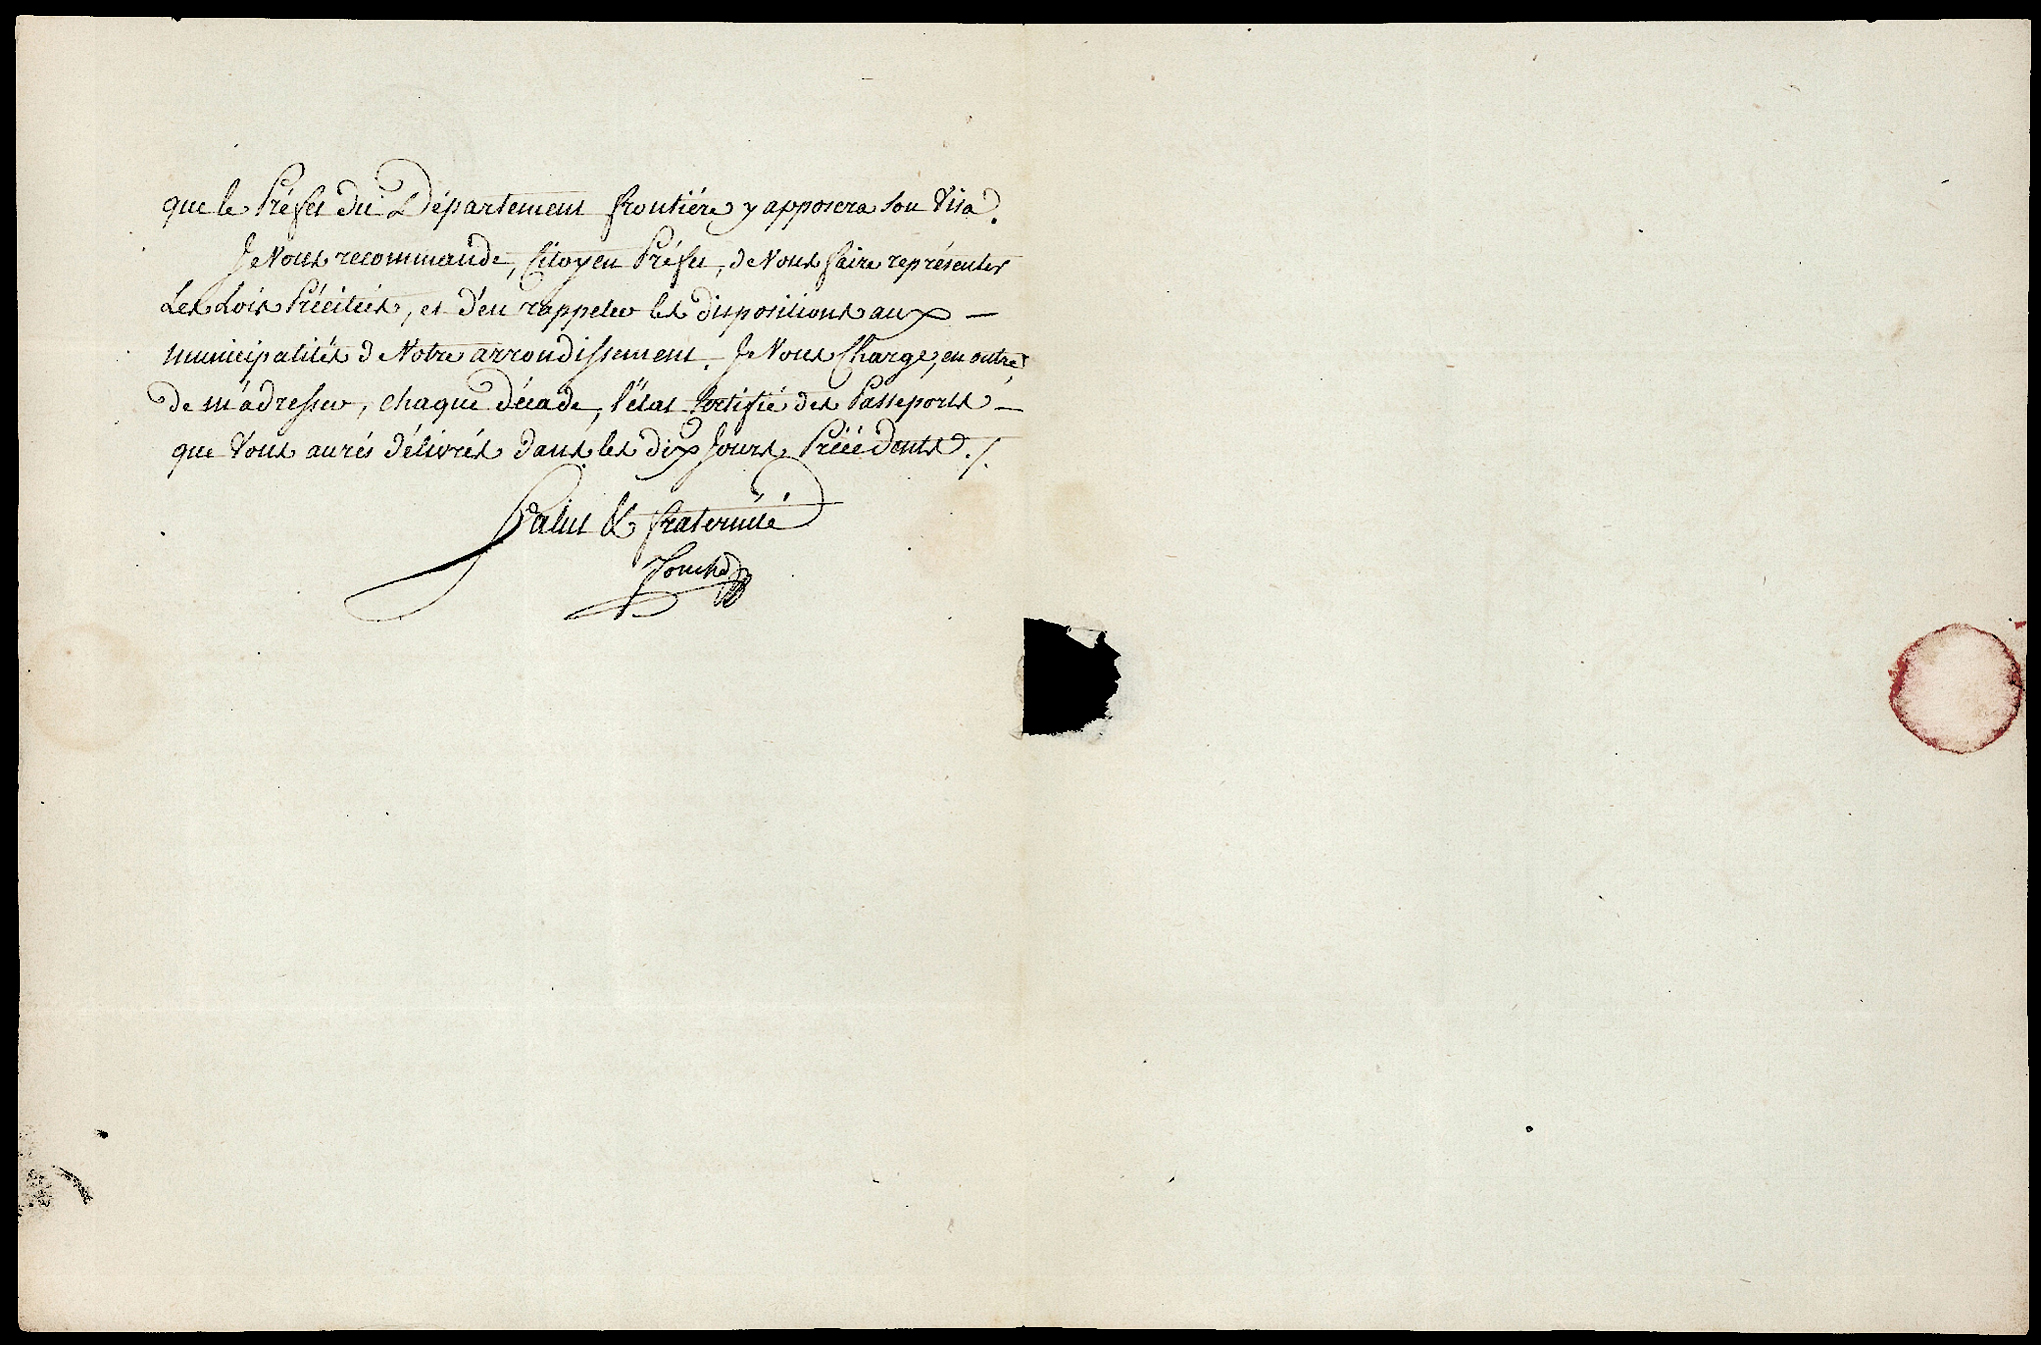 que le Préfet du Département frontiére y apposera son Visa.
Je Vous recommande, Citoyen Préfet, de Vous faire représenter
Les Lois Précitées, et d'en rappeler les dispositions aux —
municipalités de Votre arrondissement. Je Vous Charge, en outre,
de m'adresser, chaque décade, l'état Certifié des Passeports —
que Vous aurés délivrés dans les dix Jours Précédents ./.
Salut & fraternité
Fouché